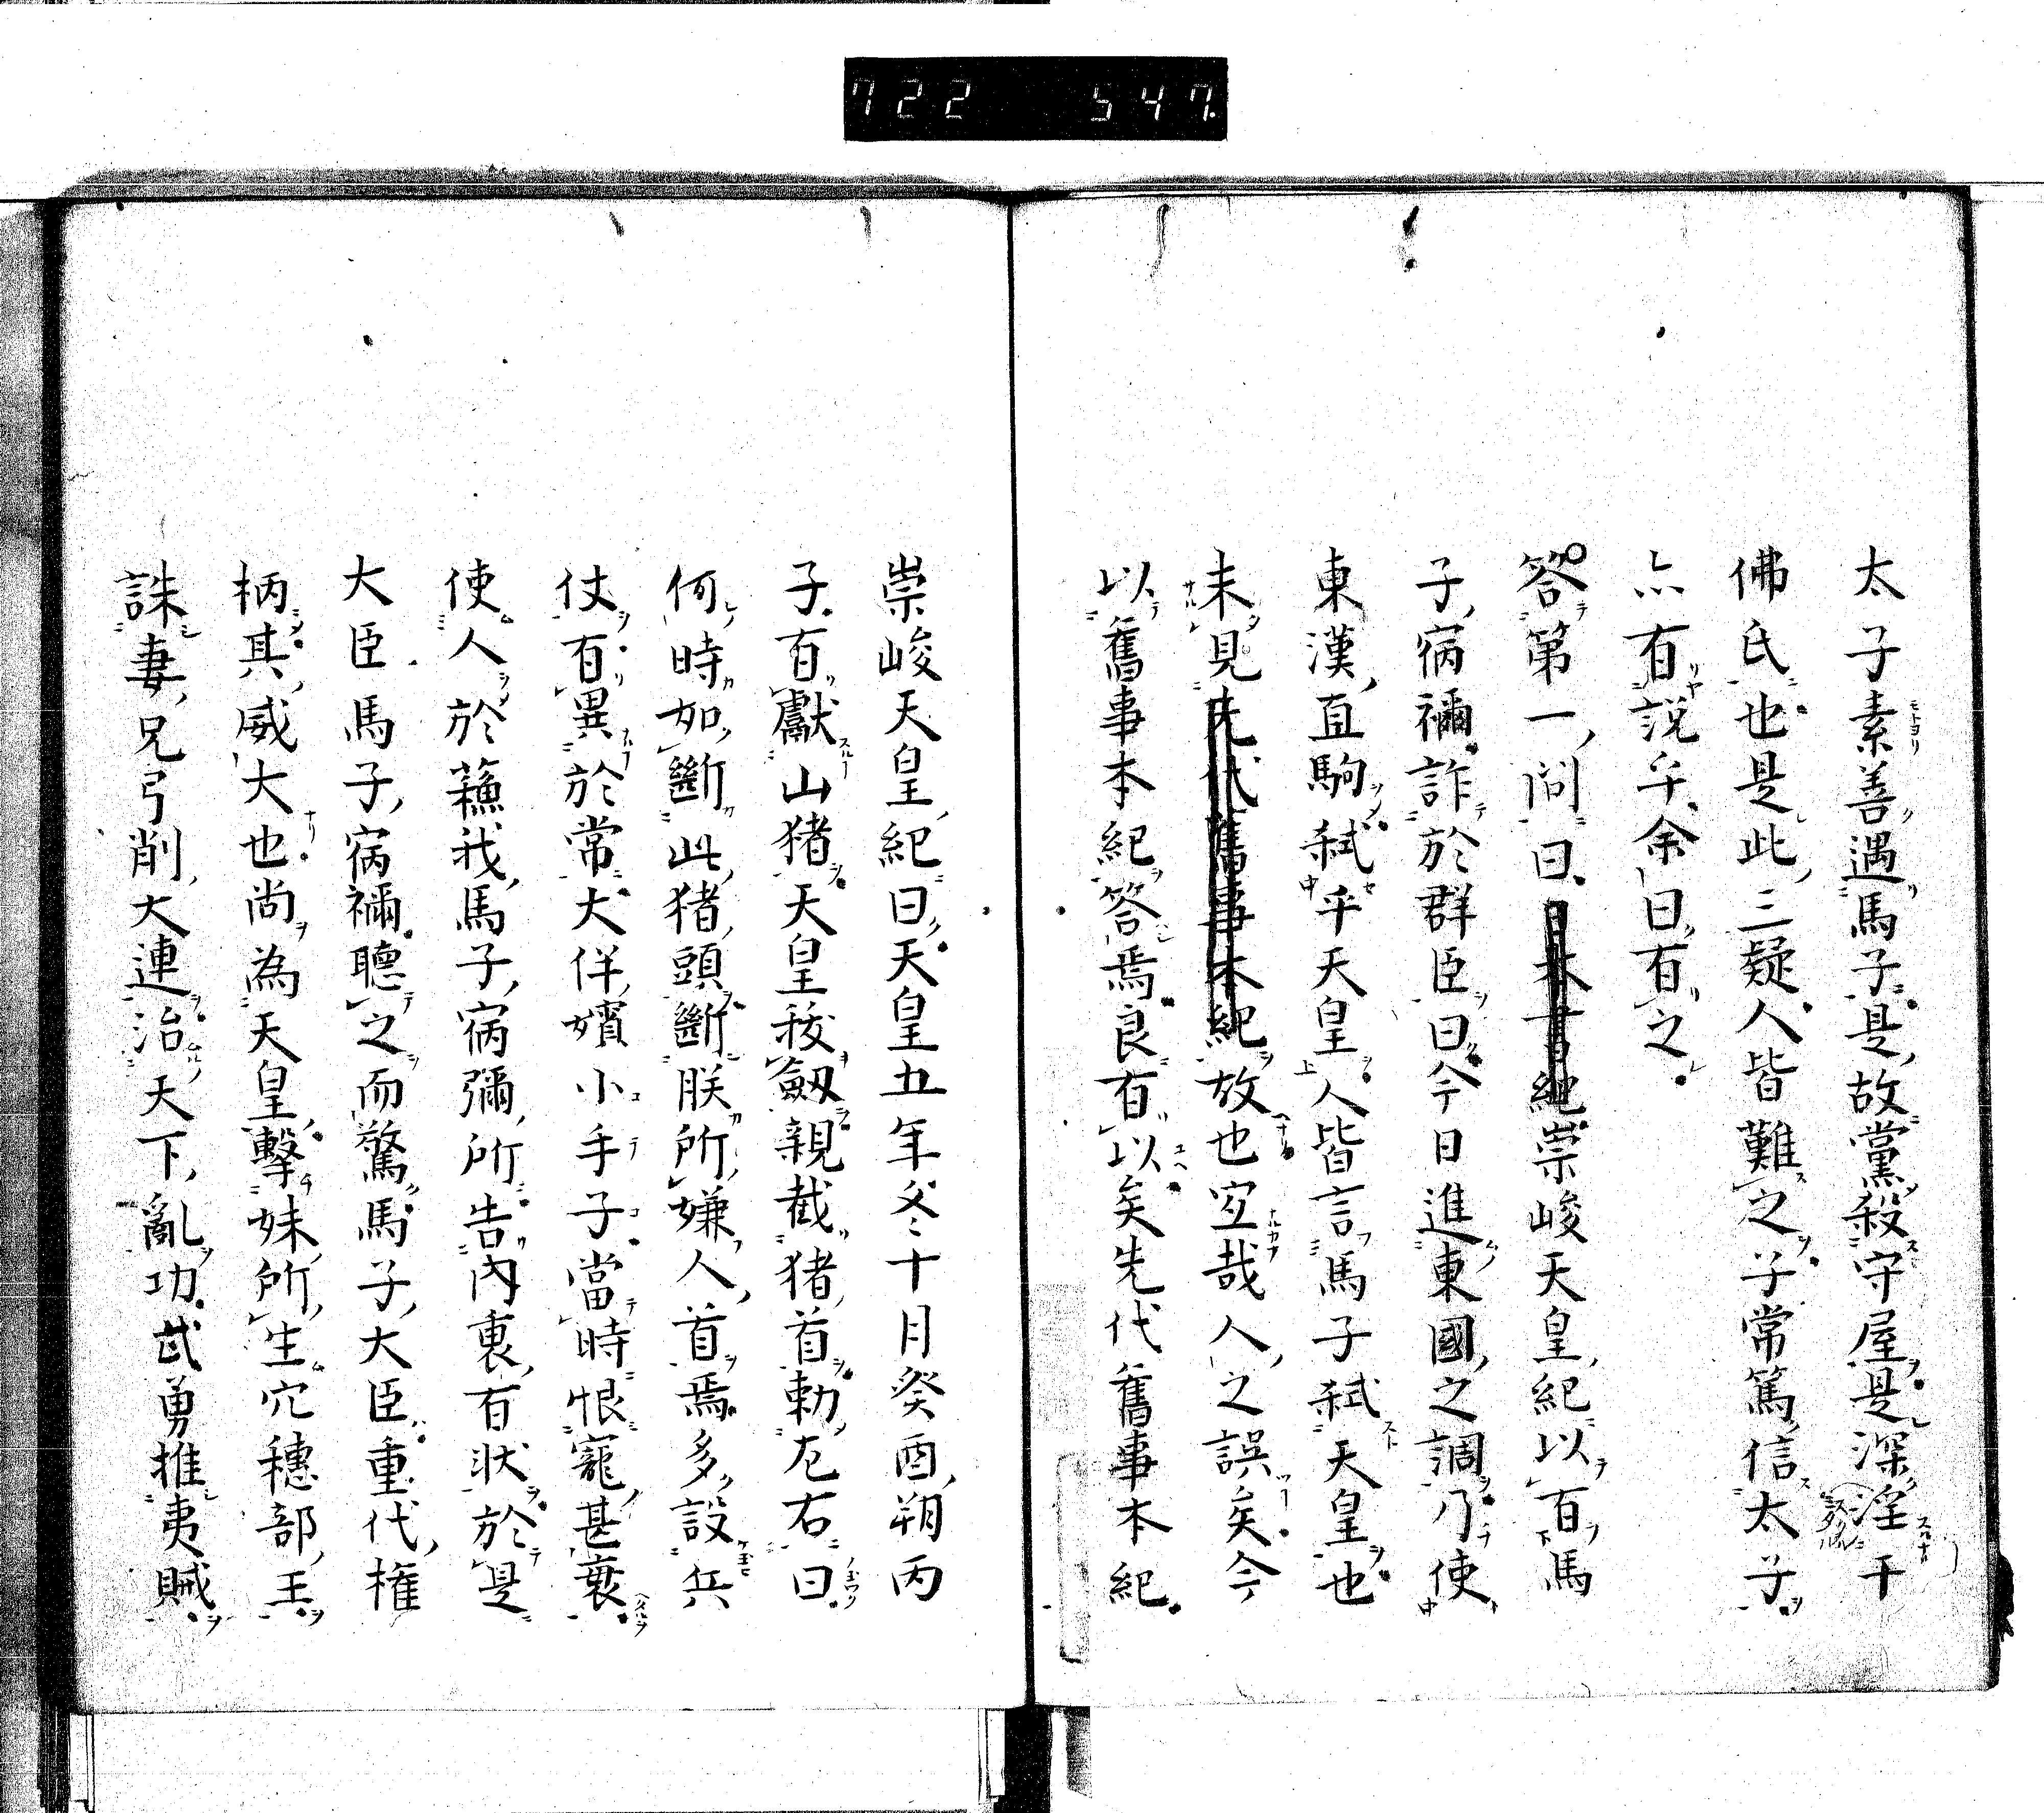 722 547.
太子素善遇馬子是故黨殺守屋是深淫于
佛氏也是此三疑人皆難之子常篤信太子
亦有説乎余曰有之
答第一問曰日本書紀崇峻天皇紀以有馬
子宿禰詐於群臣曰今日進東國之調乃使
東漢直駒弑乎天皇人皆言馬子弑天皇也
未見先代舊事本紀故也宜哉人之誤矣今
以舊事本紀答焉良有以矣先代舊事本紀
崇峻天皇紀曰天皇五年冬十月癸酉朔丙
子有獻山猪天皇拔劔親截猪首勅左右曰
何時如斷此猪頭斷朕所嫌人首焉多設兵
仗有異於常大伴嬪小手子當時恨寵甚衰
使人於蘓我馬子宿彌所告内裏有状於是
大臣馬子宿禰聽之而驚馬子大臣重代權
柄其威大也尚為天皇擊妹所生穴穗部王
誅妻兄弓削大連治天下亂功武勇推夷賊